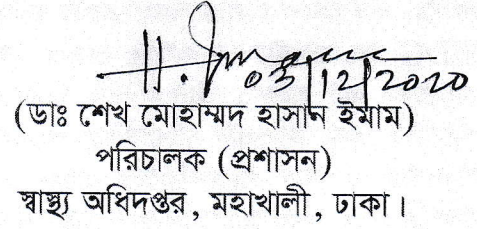 H. Imam
03/12/2020
(ডাঃ শেখ মোহাম্মদ হাসান ইমাম)
পরিচালক (প্রশাসন)
স্বাস্থ্য অধিদপ্তর, মহাখালী, ঢাকা।